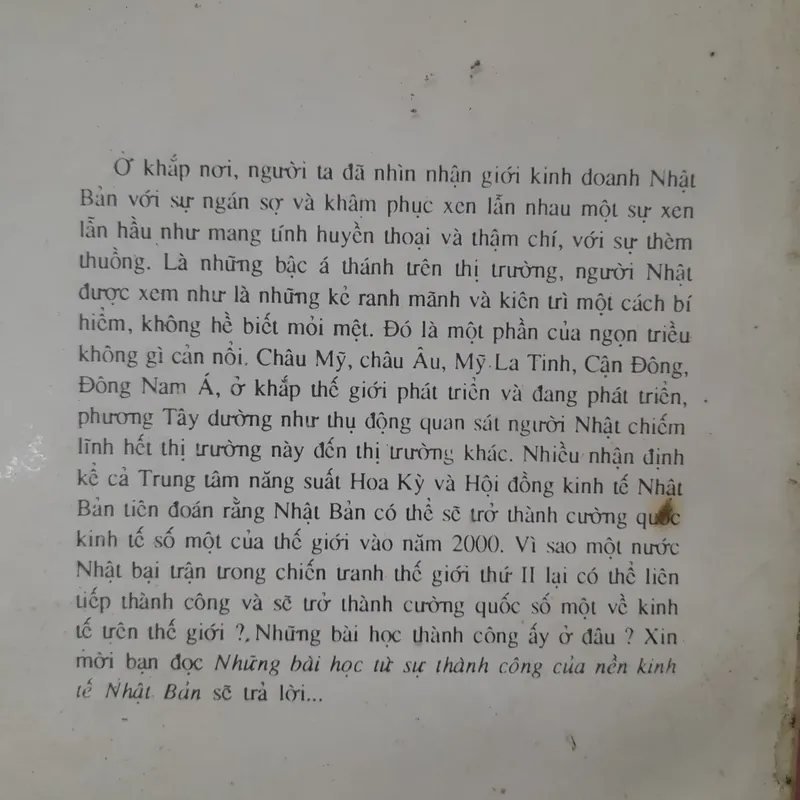 Ở khắp nơi, người ta đã nhìn nhận giới kinh doanh Nhật
Bản với sự ngán sợ và khâm phục xen lẫn nhau một sự xen
lẫn hầu như mang tính huyền thoại và thậm chí, với sự thèm
thuồng. Là những bậc á thánh trên thị trường, người Nhật
được xem như là những kẻ ranh mãnh và kiên trì một cách bí
hiểm, không hề biết mỏi mệt. Đó là một phần của ngọn triều
không gì cản nổi. Châu Mỹ, châu Âu, Mỹ La Tinh, Cận Đông,
Đông Nam Á, ở khắp thế giới phát triển và đang phát triển,
phương Tây dường như thụ động quan sát người Nhật chiếm
lĩnh hết thị trường này đến thị trường khác. Nhiều nhận định
kể cả Trung tâm năng suất Hoa Kỳ và Hội đồng kinh tế Nhật
Bản tiên đoán rằng Nhật Bản có thể sẽ trở thành cường quốc
kinh tế số một của thế giới vào năm 2000. Vì sao một nước
Nhật bại trận trong chiến tranh thế giới thứ II lại có thể liên
tiếp thành công và sẽ trở thành cường quốc số một về kinh
tế trên thế giới ?. Những bài học thành công ấy ở đâu ? Xin
mời bạn đọc Những bài học từ sự thành công của nền kinh
tế Nhật Bản sẽ trả lời...